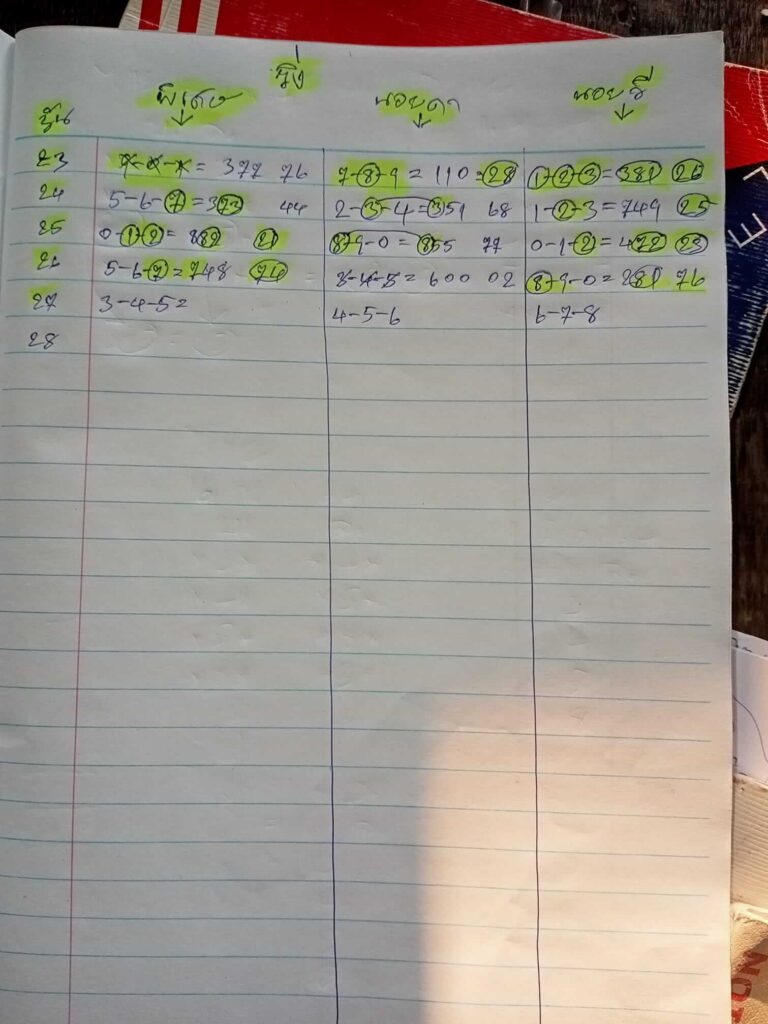 วิ่ง
พิเศษ นอยดา นอยวี
วัน
23 x-x-x = 377 76 7-8-9 = 110 = 28 1-2-3 = 381 26
24 5-6-7 = 373 44 2-3-4 = 351 68 1-2-3 = 749 25
25 0-1-2 = 882 21 8-9-0 = 855 77 0-1-2 = 472 23
26 5-6-7 = 748 74 3-4-5 = 600 02 8-9-0 = 281 76
27 3-4-5 = 4-5-6 6-7-8
28